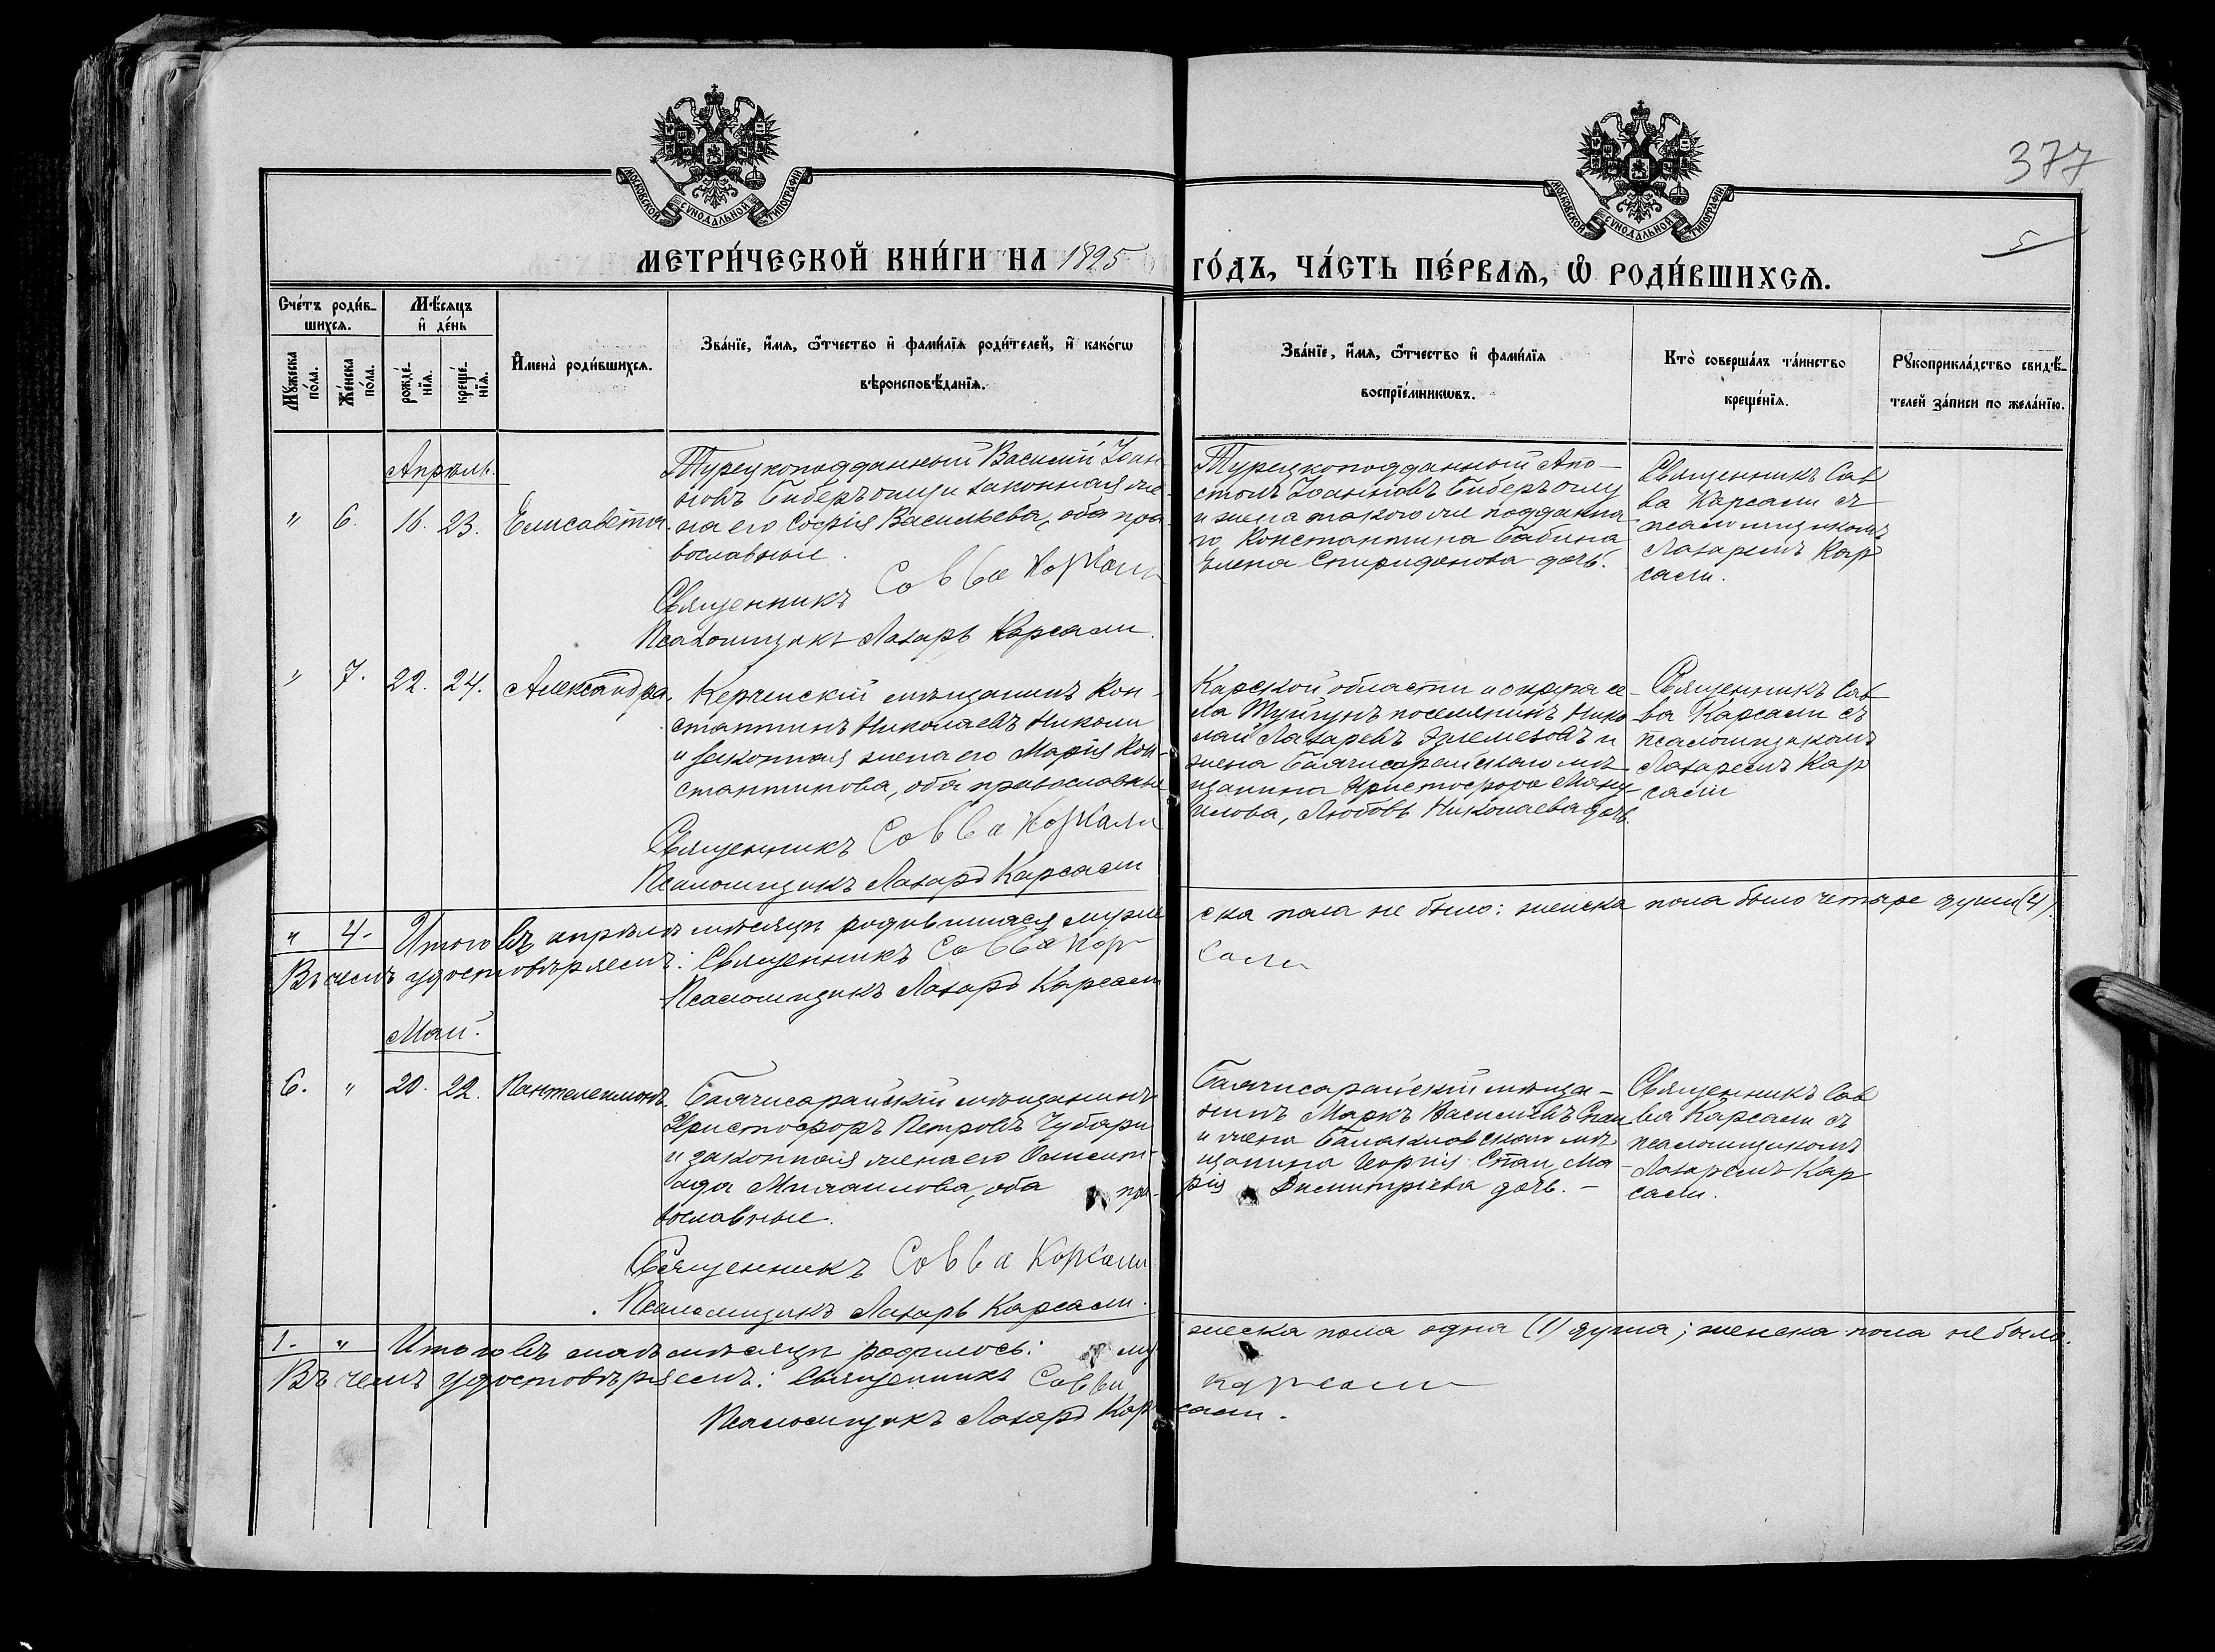 377
5
МОСКОВСКОЙ СѴНОДАЛЬНОЙ ТИПОГРАФІИ
МОСКОВСКОЙ СѴНОДАЛЬНОЙ ТИПОГРАФІИ
МЕТРИ́ЧЕСКОЙ КНИ́ГИ НА 1895 ГО́ДЪ, ЧА́СТЬ ПЕ́РВАѦ, Ѡ҆ РОДИ́ВШИХСѦ.
Сче́тъ роди́в-
шихсѧ.
Мꙋ́жеска по́ла.
Же́нска по́ла.
Мѣ́сѧцъ
и҆ де́нь
рожде́-
нїѧ.
креще́-
нїѧ.
И҆мена̀ роди́вшихсѧ.
Зва́нїе, и҆́мѧ, ѻ҆́тчество и҆ фами́лїѧ роди́телей, и҆ како́гѡ
вѣроисповѣ́данїѧ.
Зва́нїе, и҆́мѧ, ѻ҆́тчество и҆ фами́лїѧ
воспрїе́мникѡвъ.
Кто̀ соверша́лъ та́инство
креще́нїѧ.
Рꙋкоприкла́дство свидѣ́-
телей за́писи по жела́нїю.
Апрѣль.
" 6. 16. 23. Елисавета.
Турецкоподданный Василій Іоан-
новъ Биберъ оглу и законная же-
на его Софія Васильева, оба пра-
вославные.
Священникъ Савва Карсали
Псаломщикъ Лазарь Карсали.
Турецкоподданный Апо-
столъ Іоанновъ Биберъ оглу
и жена такого же подданна-
го Константина Бабина
Елена Спиридонова дочь.
Священникъ Сав
ва Карсали съ
псаломщикомъ
Лазаремъ Кар
сали.
" 7. 22. 24. Александра.
Керченскій мѣщанинъ Кон-
стантинъ Николаевъ Николи
и законная жена его Марія Кон-
стантинова, оба православные
Священникъ Савва Карсали
Псаломщикъ Лазарь Карсали
Карской области и округа се-
ла Туйгунъ поселянинъ Нико
лай Лазаревъ Элемезовъ и
жена Бахчисарайскаго мѣ-
щанина ХристофораМану-
илова, Любовь Николаева дочь.
Священникъ Сав
ва Карсали съ
псаломщикомъ
Лазаремъ Кар
сали
" 4- Итого въ апрѣлѣ мѣсяцѣ родившихся муже ска пола не было: женска пола было четыре души (4).
Въ чемъ удостовѣряемъ: Священникъ Савва Кар сали
Псаломщикъ Лазарь Карсали
Май.
6. " 20. 22. Пантелеимонъ.
Бахчисарайскій мѣщанинъ
Христофоръ Петровъ Чубари
и законная жена его
Михаилова, оба пра-
вославные.
Священникъ Савва Карсали
Псаломщикъ Лазарь Карсали.
Бахчисарайскій мѣща-
нинъ Маркъ Васильевъ Спаи
и жена Балаклавскаго мѣ-
щанина Георгія Спаи, Ма-
рія Димитріева дочь. -
Священникъ Сав
ва Карсали съ
псаломщикомъ
Лазаремъ Кар
сали.
1. " Итого въ маѣ мѣсяцѣ родилось: му жеска пола одна (1) душа; женска пола не было.
Въ чемъ удостовѣряемъ: Священникъ Савва Карсали
Псаломщикъ Лазарь Кар сали.